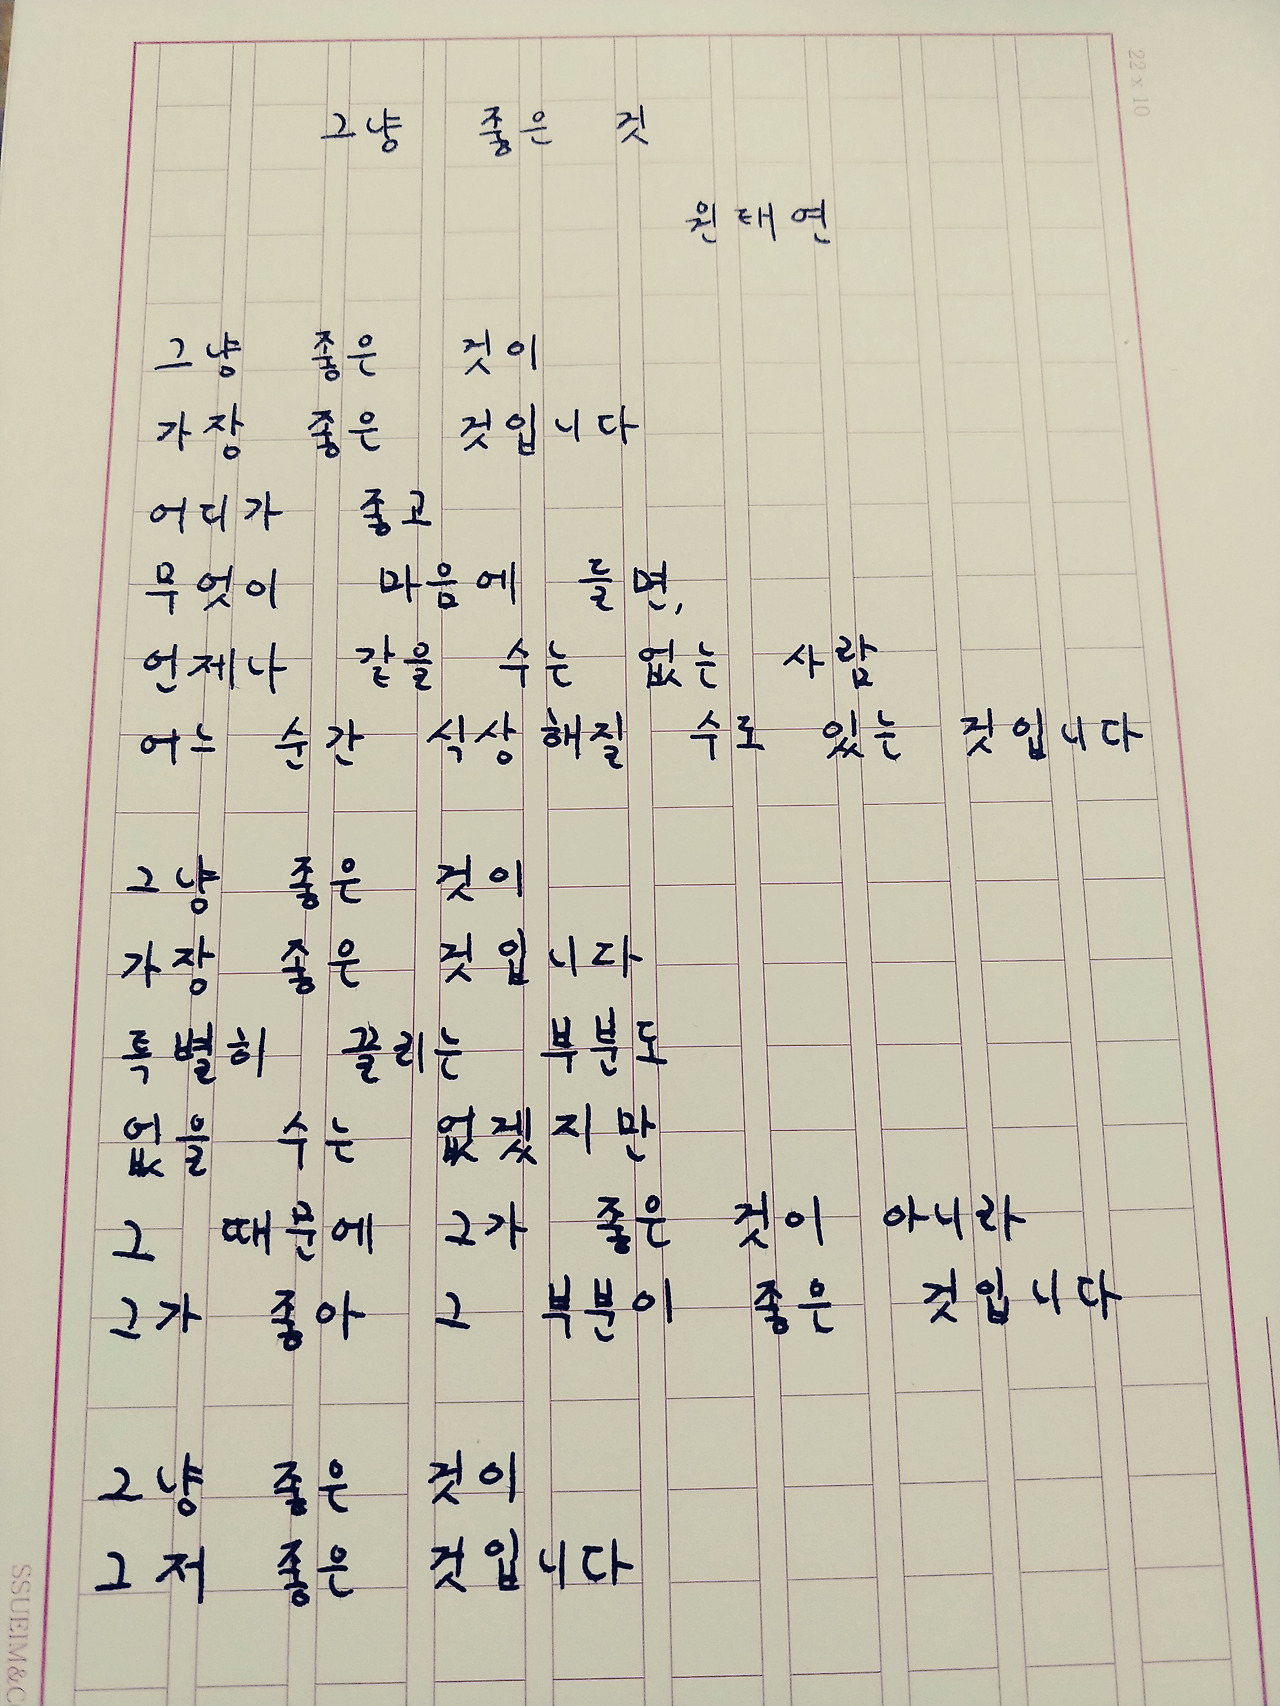 22 x 10
그냥 좋은 것
원태연
그냥 좋은 것이
가장 좋은 것입니다
어디가 좋고
무엇이 마음에 들면,
언제나 같을 수는 없는 사람
어느 순간 식상해질 수도 있는 것입니다
그냥 좋은 것이
가장 좋은 것입니다
특별히 끌리는 부분도
없을 수는 없겠지만
그 때문에 그가 좋은 것이 아니라
그가 좋아 그 부분이 좋은 것입니다
그냥 좋은 것이
그저 좋은 것입니다
SSUEIM&C